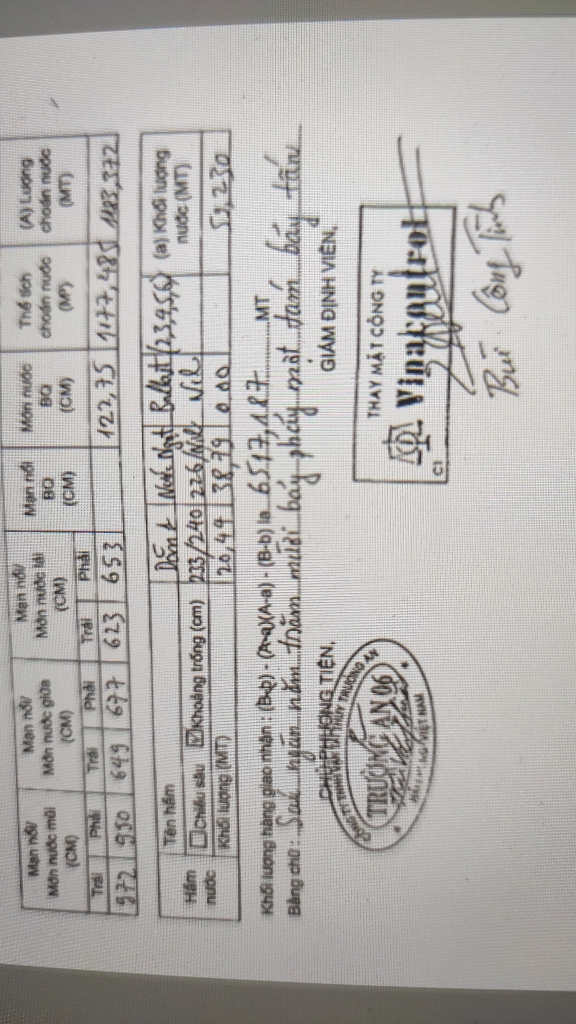 Mạn nổi/ Mớn nước mũi (CM) Mạn nổi/ Mớn nước giữa (CM) Mạn nổi/ Mớn nước lái (CM) Mạn nổi BQ (CM) Mớn nước BQ (CM) Thể tích choán nước (M³) (A) Lượng choán nước (MT)
Trái Phải Trái Phải Trái Phải
972 950 649 677 623 653 122,75 1177,485 1183,372
Tên hầm Nước Ngọt Ballast (2,3,4,5,6) (a) Khối lượng nước (MT)
Hầm nước Chiều sâu Khoảng trống (cm) 233/240 226/Nil Nil
Khối lượng (MT) 20,44 38,79 0,00 59,230
Khối lượng hàng giao nhận : (B-b) - (A-a)(A-a) - (B-b) là 6517,187 MT
Bằng chữ : Sáu ngàn năm trăm mười bảy phẩy một tám bảy tấn
PHƯƠNG TIỆN, GIÁM ĐỊNH VIÊN,
TRƯỜNG AN 06
VIỆT NAM
THAY MẶT CÔNG TY
Vinacontrol
C1
Bùi Công Tình